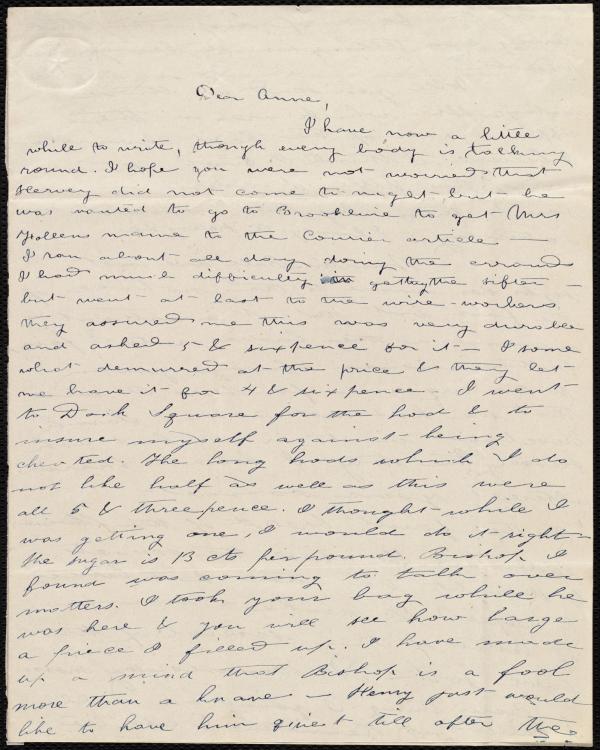 Dear Anne,
I have now a little
while to write, though every body is talking
round. I hope you were not worried that
Hervey did not come to night but he
was wanted to go to Brookline to get Mrs
Follens name to the Courier article —
I ran about all day doing the errands
I had much difficulty in getting the sifter —
but went at last to the wire-workers
they assured me this was very durable
and asked 5 & sixpence for it — I some
what demurred at the price & they let
me have it for 4 & sixpence. I went
to Dock Square for the hod & to
insure myself against being
cheated. The long hods which I do
not like half as well as this were
all 5 & threepence. I thought while I
was getting one, I would do it right —
the sugar is 13 cts per pound. Bishop I
found was coming to talk over
matters. I took your bag while he
was here & you will see how large
a piece I filled up. I have made
up a mind that Bishop is a fool
more than a knave — Henry just would
like to have him quiet till after the